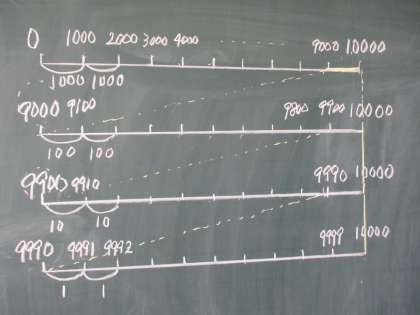 0 1000 2000 3000 4000 9000 10000
1000 1000
9000 9100 9800 9900 10000
100 100
9900 9910 9990 10000
10 10
9990 9991 9992 9999 10000
1 1